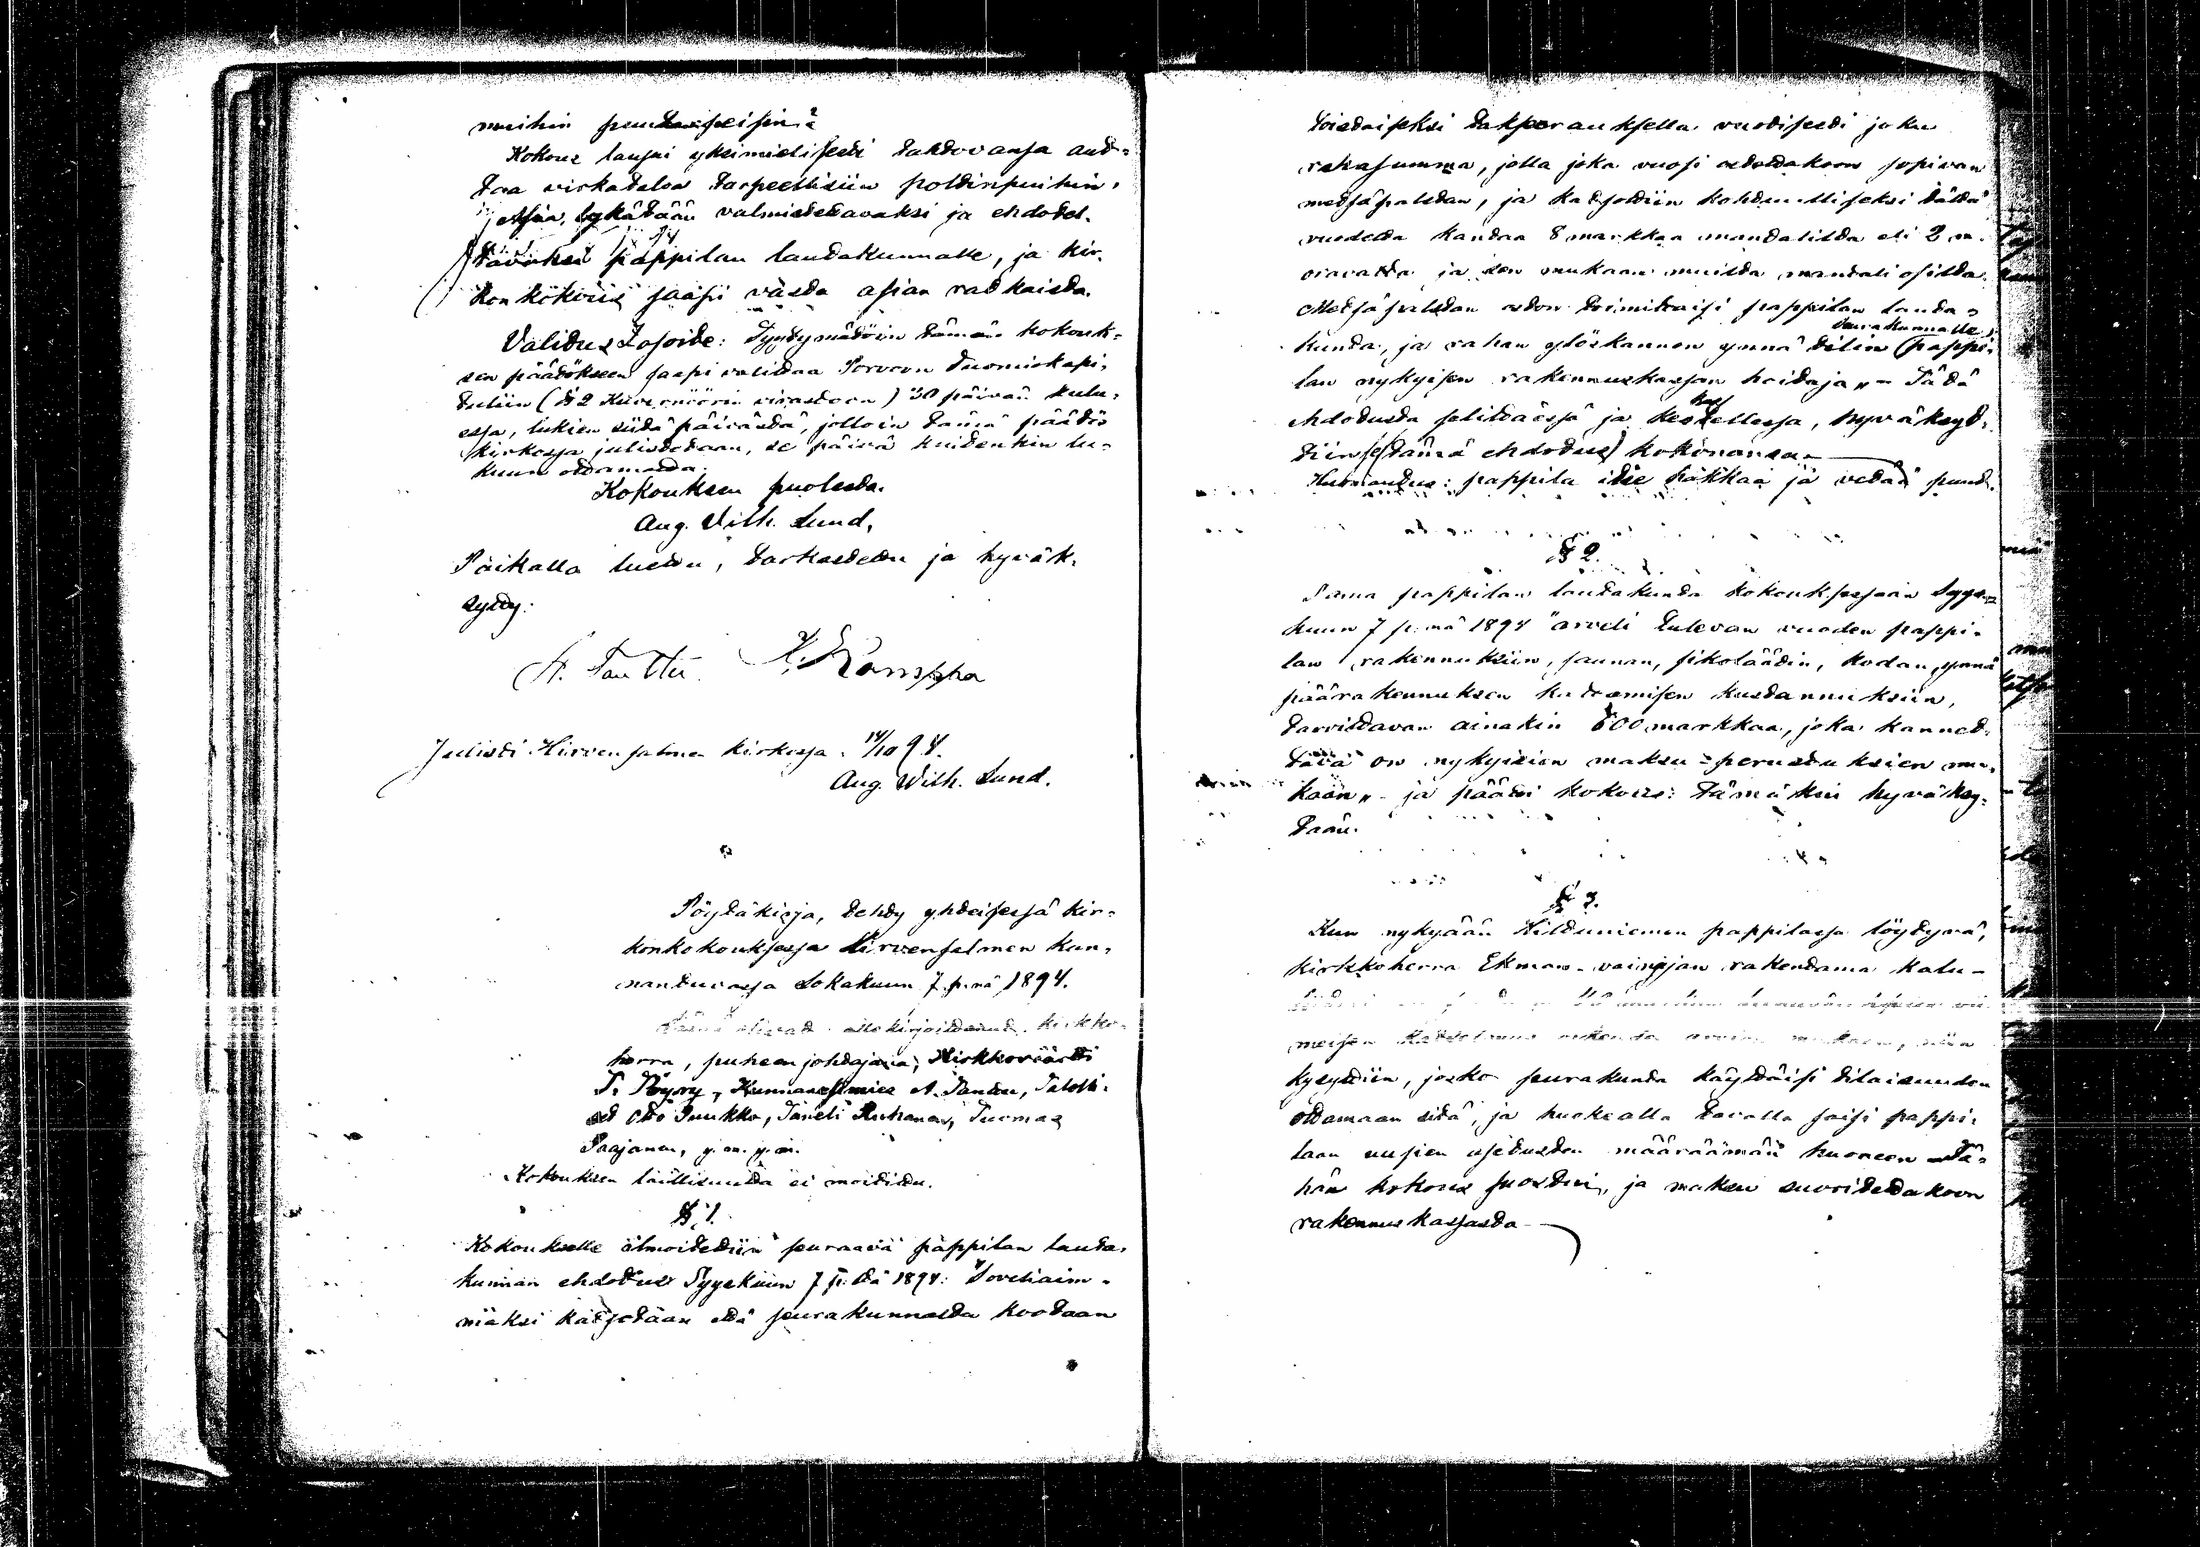 muihin puutarpeisin?
Kokous lausui yksimielisesti tahtovansa aut-
taa virkataloa tarpeellisiin polttopuihin,
Asia lykätään valmistettavaksi ja ehdotet-
tavaksi pappilan lautakunnalle, ja kir-
kon kokous saapi vasta asian ratkaista.
Valitus Osoite: Tyytymätöin tämän kokouk-
sen päätökseen saapi valittaa Porvoon Tuomiokapi-
tuliin (§ 2 Kuvernöörin virastoon) 30 päivän kulu-
essa, lukien siitä päivästä, jolloin tämä päätös
kirkossa julistetaan, se päivä kuitenkin lu-
kuun ottamatta.
Kokouksen puolesta.
Aug. Wilh. Lund.
Paikalla luettu, tarkastettu ja hyväk-
sytty:
A. Tanttu K. Romppa
Julisti Hirvensalmen kirkossa 14/10 94.
Aug. Wilh. Lund.
Pöytäkirja, tehty yhteisessä kir-
konkokouksessa Hirvensalmen kun-
nantuvassa Lokakuun 7 p:nä 1894.
Läsnä olivat allekirjoittanut kirkko-
herra, puheenjohtajana, Kirkkoväärti
P. Pöyry, Kunnanesimies A. Tanttu, Talolli-
set Otto Puukko, Taneli Ruhanen, Tuomas
Paajanen, y. m. y. m.
Kokouksen laillisuutta ei moitittu.
§ 1.
Kokoukselle ilmoitettiin seuraava pappilan lauta-
kunnan ehdotus Syyskuun 7 p:tä 1894: "Soveliaim-
maksi katsotaan että seurakunnalta kootaan
toistaiseksi taksorauksella vuotisesti joku
rahasumma, jolla joka vuosi ostettakoon sopivan
metsäpalstan, ja katsottiin kohtuulliseksi tältä
vuodelta kantaa 8 markkaa manttalilta eli 2 m.
oravalta ja sen mukaan muilta manttali osilta.
Metsäpalstan oston toimittaisi pappilan lauta-
kunta, ja rahan ylöskannon ynnä tilin seurakunnalle, pappi-
lan nykyisen rakennuskassan hoitaja." – Tätä
ehdotusta selittäessä ja keskustellessa, hyväksyt-
tiin (tämä ehdotus) kokonansa.
Huomautus: pappila itse hakkaa ja vetää puut.
§ 2.
Sama pappilan lautakunta kokouksessaan Syys-
kuun 7 p:nä 1894 "arveli tulevan vuoden pappi-
lan rakennuksiin, saunan, sikoläätin, kodan, ynnä
päärakennuksen kattamisen kustannuksiin,
tarvittavan ainakin 600 markkaa, joka kannet-
tava on nykyisien maksu-perustuksien mu-
kaan" – ja päätti kokous: tämäkin hyväksy-
tään.
§ 3.
Kun nykyään Hiltuniemen pappilassa löytyvä,
kirkkoherra Ekman-vainajan rakentama kalu-
kysyttiin, josko seurakunta käyttäisi tilaisuuden
ottamaan sitä, ja huokealla tavalla saisi pappi-
laan uusien asetusten määräämän huoneen – Tä-
hän kokous suostui, ja maksu suoritettakoon
rakennuskassasta